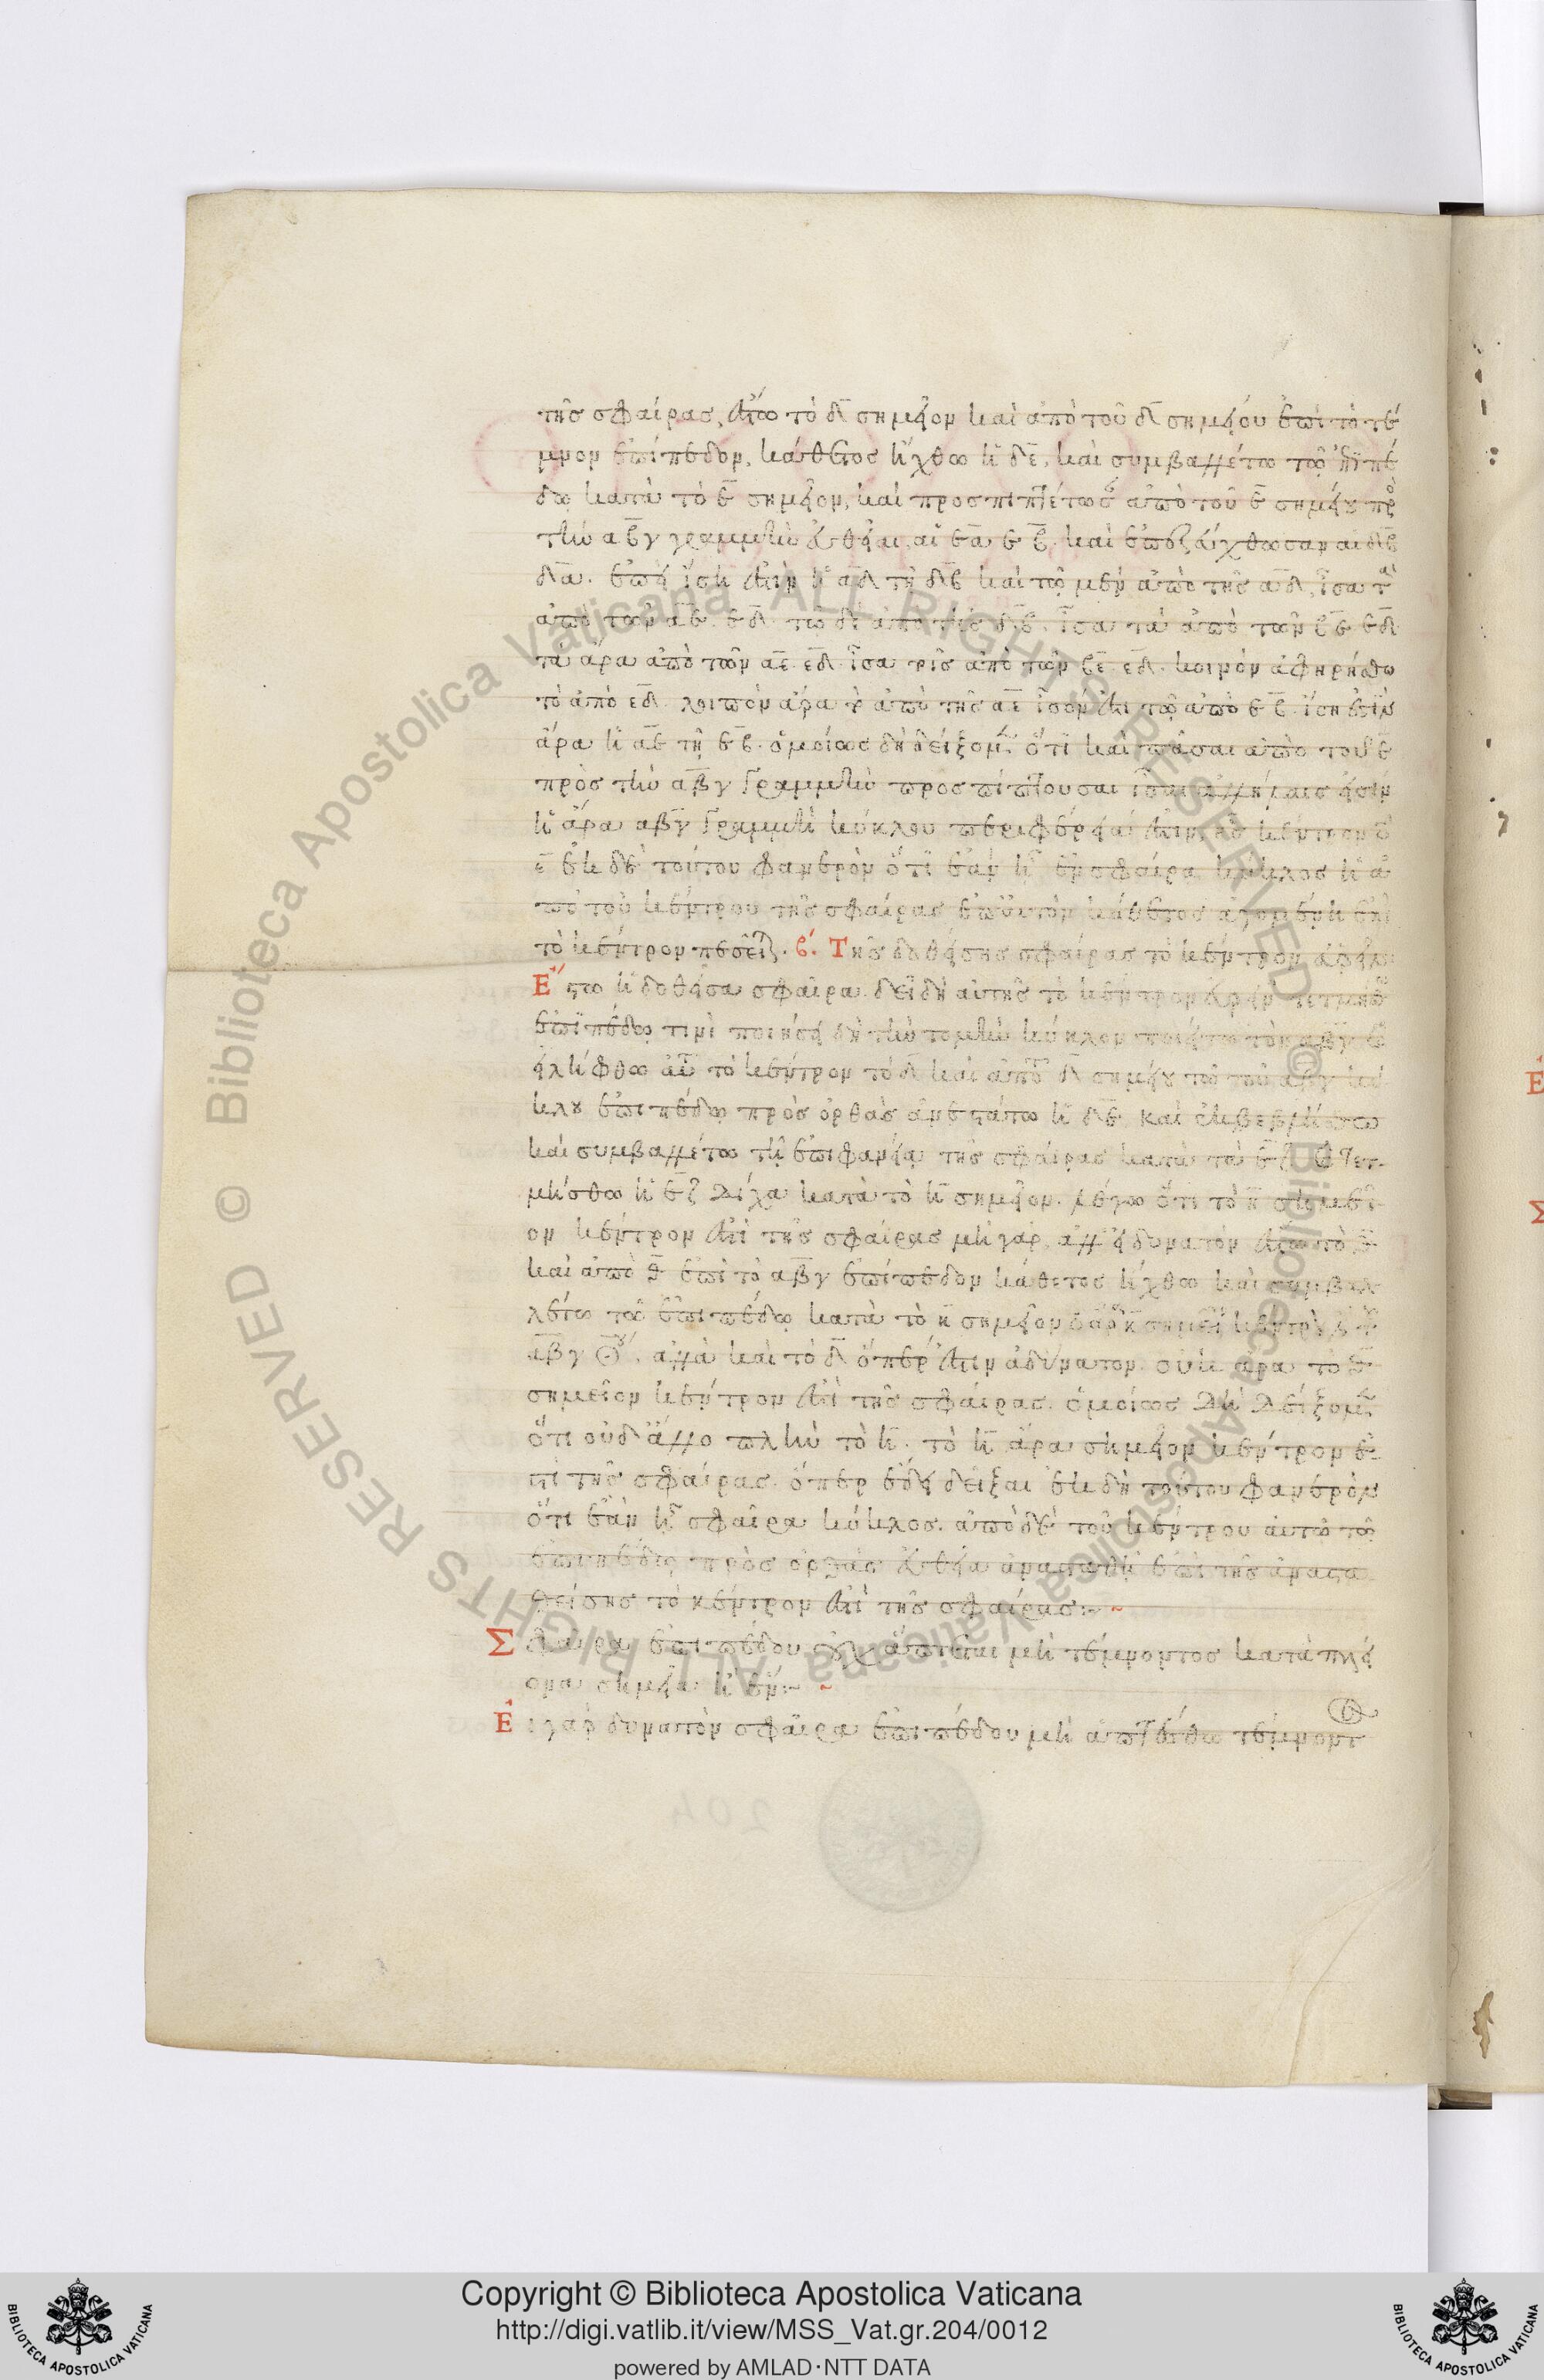 της σφαίρας, ἔστω τὸ δ σημεῖον καὶ ἀπὸ τοῦ δ σημείου ἐπὶ τὸ τέ
μνον ἐπίπεδον, κάθετος ἤχθω ἡ δε, καὶ συμβαλλέτω τῷ ἐπιπέ
δω κατὰ τὸ ε σημεῖον, καὶ προσπιπτέτωσ ἀπὸ τοῦ ε σημείου πρ
τὴν αβγ γραμμὴν εὐθεῖαι, αἱ εα εβ. καὶ ἐπεζεύχθωσαν αἱ δβ
δα. ἐπεὶ ἴση ἐστὶν ἡ αδ τῇ δβ καὶ τῷ μὲν ἀπὸ τῆς αδ, ἴσα τὰ
ἀπὸ τῶν αε. εδ. τῷ δὲ ἀπὸ τῆς δβ. ἴσα τὰ ἀπὸ τῶν βε εδ
τὰ ἄρα ἀπὸ τῶν αε εδ. ἴσα τοῖς ἀπὸ τῶν βε. εδ. κοινὸν ἀφηρήσθω
τὸ ἀπὸ εδ. λοιπὸν ἄρα τὸ ἀπὸ τῆς αε ἴσον ἐστὶ τῷ ἀπὸ εβ. ἴση ἐστὶν
ἄρα ἡ αε τῇ εβ. ὁμοίως δὴ δείξομ ὅτι καὶ πᾶσαι ἀπὸ τοῦ ε
πρὸς τὴν αβγ γραμμὴν προσπίπτουσαι ἴσαι ἀλλήλαις εἰσίν
ἡ ἄρα αβγ γραμμὴ κύκλου περιφέρειά ἐστιν, κέντρον
ε ἐκ δὲ τούτου φανερὸν ὅτι ἐὰν ᾖ ἐν σφαίρα κύκλος ἡ ἀ
πὸ τοῦ κέντρου τῆς σφαίρας ἐπ' αὐτὸν κάθετος ἀγομένη ἐπὶ
τὸ κέντρον πεσεῖτ. β. Τῆς δοθείσης σφαίρας τὸ κέντρον εὑρεῖν
Ἔστω ἡ δοθεῖσα σφαῖρα. δεῖ δὴ αὐτῆς τὸ κέντρον εὑρεῖν τετμήσθ
ἐπιπέδω τινὶ ποιήσει δὴ τὴν τομὴν κύκλον ποιείτω τὸν αβγ
εἰλήφθω αὐτ τὸ κέντρον τὸ δ καὶ ἀπὸ δ σημείου τῷ τοῦ αβγ κύ
κλου ἐπιπέδω πρὸς ὀρθὰς ἀνεστάτω ἡ δε. καὶ ἐκβεβλήσθω
καὶ συμβαλλέτω τῇ ἐπιφανεία τῆς σφαίρας κατὰ τὰ εζ τετ
μήσθω ἡ εζ δίχα κατὰ τὸ η σημεῖον. λέγω ὅτι τὸ η σημεῖ
ον κέντρον ἐστὶ τῆς σφαίρας μὴ γάρ, ἀλλ' εἰ δυνατὸν ἔστω τὸ θ
καὶ ἀπὸ θ ἐπὶ τὸ αβγ ἐπίπεδον κάθετος ἤχθω καὶ συμβαλ
λέτω τῷ ἐπιπέδω κατὰ τὸ κ σημεῖον
αβγ. ἀλλὰ καὶ τὸ δ ὅπερ ἐστὶν ἀδύνατον. οὐκ ἄρα τὸ θ
σημεῖον κέντρον ἐστὶ τῆς σφαίρας. ὁμοίως δὴ δείξομ
ὅτι οὐδ' ἄλλο πλὴν τὸ η. τὸ η ἄρα σημεῖον κέντρον ἐ
στὶ τῆς σφαίρας. ὅπερ ἔδει δεῖξαι ἐκ δὴ τούτου φανερὸν
ὅτι ἐὰν ᾖ σφαῖρα κύκλος. ἀπὸ δὲ τοῦ κέντρου αὐτῶ τῷ
ἐπιπέδω πρὸς ὀρθὰς εὐθεῖα ἀνασταθῇ ἐπὶ τῆς ἀναστα
θείσης τὸ κέντρον ἐστὶ τῆς σφαίρας:~
Σφαῖρα ἐπιπέδου οὐχ ἅπτεται μὴ τέμνοντος κατὰ πλεί
ονα σημεῖα ἢ ἕν:~
Εἰ γὰρ δυνατὸν σφαῖρα ἐπιπέδου μὴ ἁπτέσθω τέμνοντ
Copyright © Biblioteca Apostolica Vaticana
http://digi.vatlib.it/view/MSS_Vat.gr.204/0012
powered by AMLAD·NTT DATA
BIBLIOTECA APOSTOLICA VATICANA
BIBLIOTECA APOSTOLICA VATICANA
Biblioteca Apostolica Vaticana ALL RIGHTS RESERVED ©
Biblioteca Apostolica Vaticana ALL RIGHTS RESERVED ©